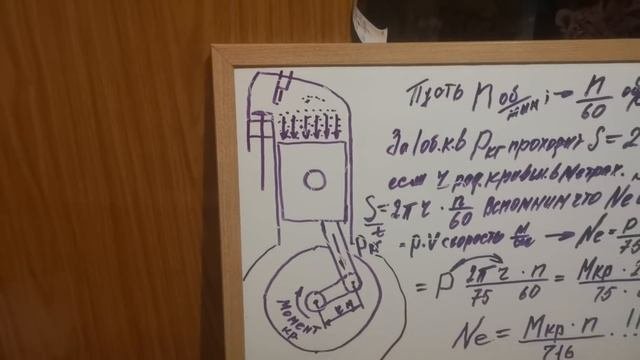 Пусть n об/мин; → n/60 об
За 1 об. к.в Pкг проходит S = 2
если r рад. кривош. в метрах.
S/t = 2πr · n/60 Вспомним что Ne
= P·V скорость м/сек → Ne = P/75
= P 2πr · n / 75 60 = Мкр · 2 / 75 ·
Ne = Мкр · n / 716 . !!
Pкг
r м
Момент кр